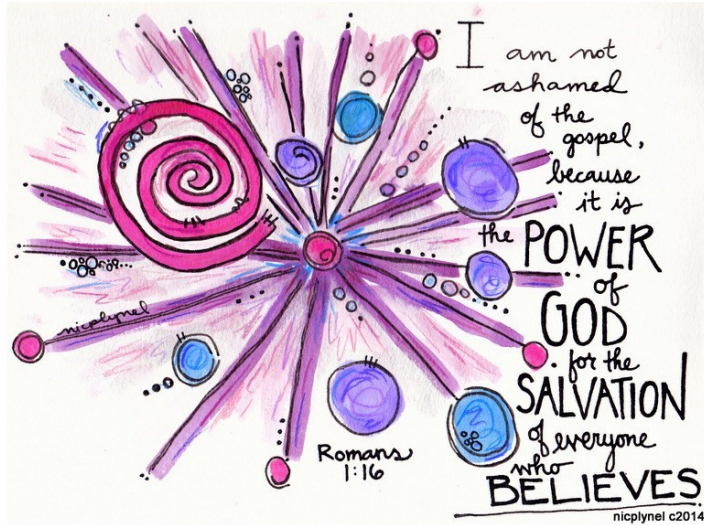 I am not
ashamed
of the
gospel,
because
it is
the POWER
of
GOD
for the
SALVATION
of everyone
who
BELIEVES
nicplynel
Romans
1:16
nicplynel c2014